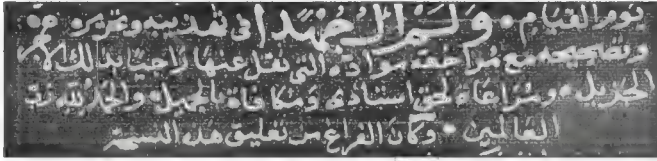 يوم القيام • ولم آل جهدا في تهذيبه وتحريره
وتصحيحه مع مراجعة مواده التي نقل عنها راجيا بذلك الاجر
الجزيل • ومراعاة لحق استاذي ومكافاة بالجميل والحمد لله رب
العالمين • وكان الفراغ من تعليق هذه النسخة